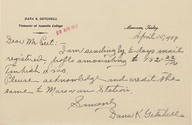 DANA K. GETCHELL
Treasurer of Anatolia College
Marsovan, Turkey
April 25, 1939
Dear Mr. Peet:
I am sending by to-days mail
registered
Turkish Lira
Please acknowledge and credit the
same to Marsovan Station
Sincerely
Dana K. Getchell